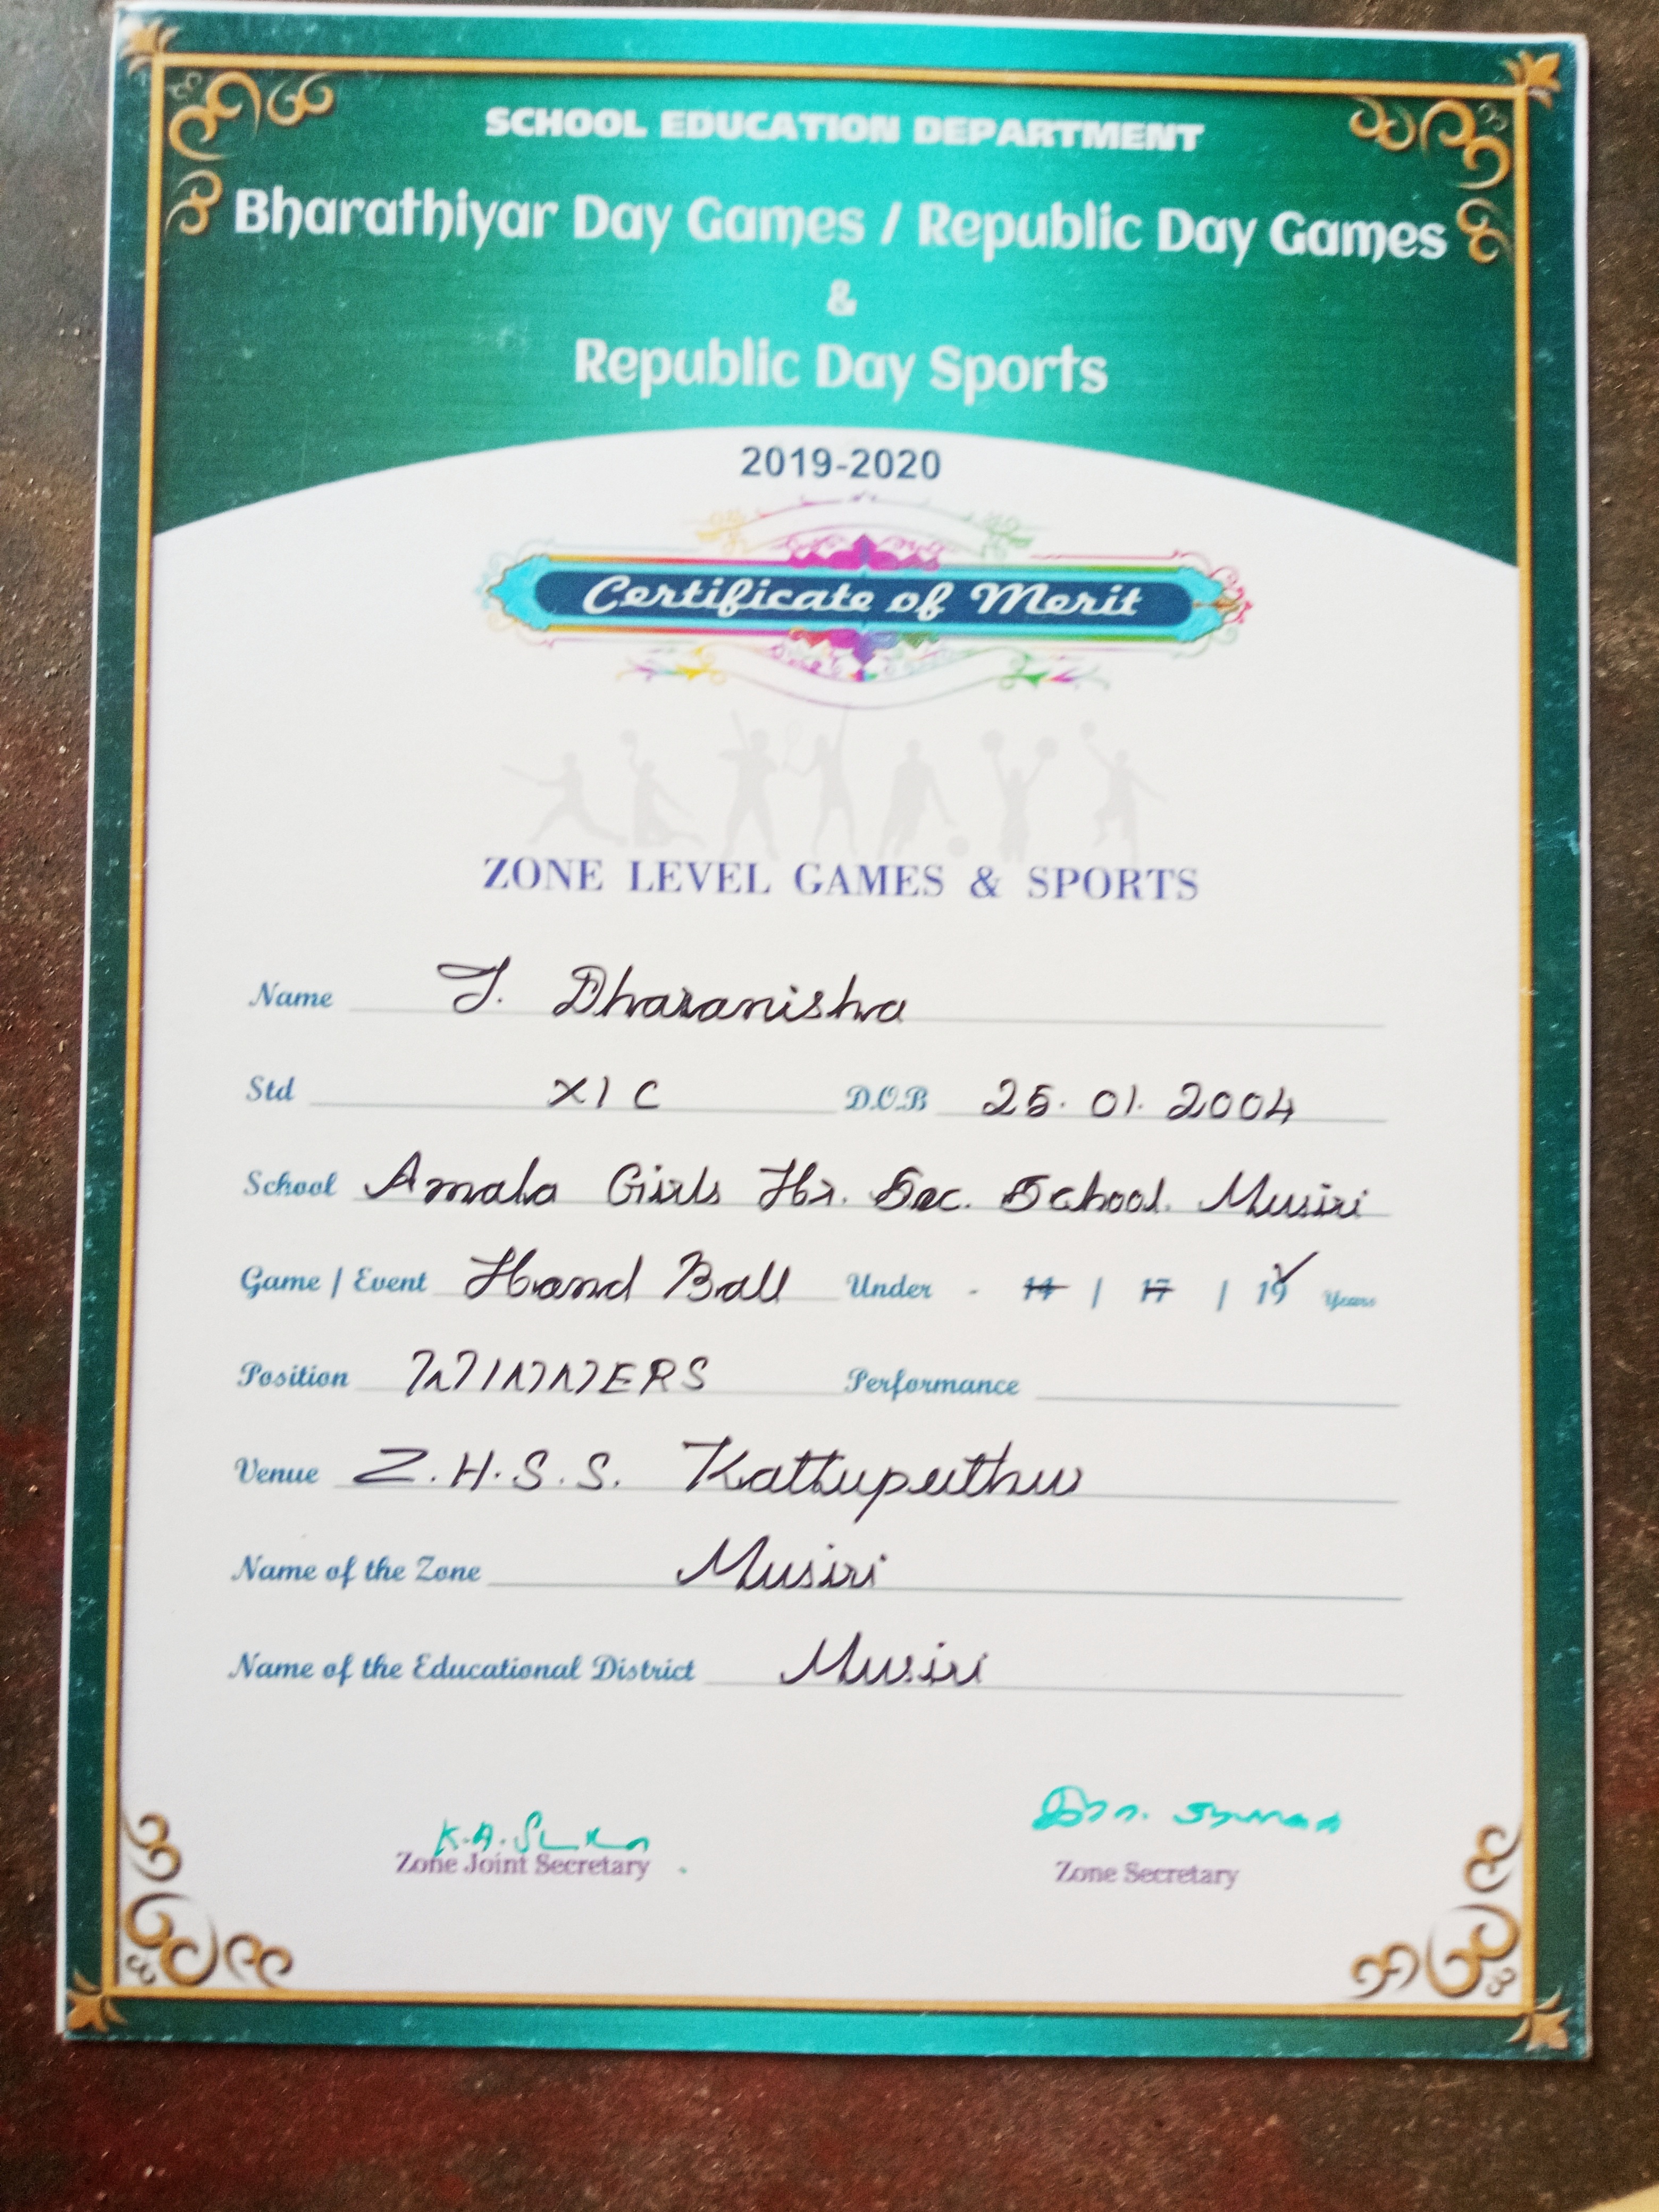 SCHOOL EDUCATION DEPARTMENT
Bharathiyar Day Games / Republic Day Games
&
Republic Day Sports
2019-2020
Certificate of Merit
ZONE LEVEL GAMES & SPORTS
Name J. Dharanisha
Std XI C D.O.B 25. 01. 2004
School Amala Girls Hr. Sec. School. Musiri
Game / Event Hand Ball Under - 14 / 17 / 19 Years
Position WINNERS Performance
Venue Z.H.S.S. Kattuputhur
Name of the Zone Musiri
Name of the Educational District Musiri
Zone Joint Secretary
Zone Secretary